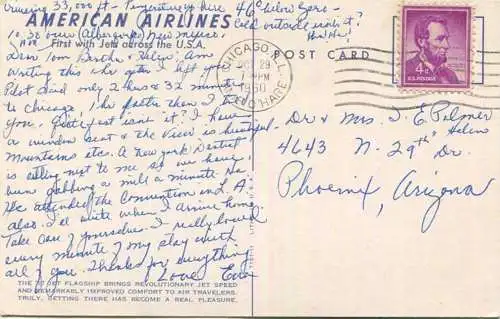 cruising 33,000 ft - Temperature here 46° below zero -
AMERICAN AIRLINES
cold outside isn't it?
10:30 over (Alberquerque) New Mexico!
Ha Ha!
First with Jets across the U.S.A.
POST CARD
CHICAGO, ILL.
OCT 29
7 PM
1960
O'HARE
4¢
U.S. POSTAGE
Dear Tom Bertha & Helen: Am
writing this one hr after I left you.
Pilot said only 2 hrs & 32 minutes
to Chicago, 1 hr faster then I to
you. Quite fast isn't it? I have
a window seat & the view is beautiful
Mountains etc. A New York Dentist
is sitting next to me so we have
been gabbing a mile a minute. Ha
He attended the Convention in L.A.
also. I'll write when I arrive home.
Take care of yourselves. I really loved
every minute of my stay with
all of you. Thanks for everything
Love
Dr & Mrs. T. E. Palmer
Helen
4643 N. 29th Dr.
Phoenix, Arizona
THE JET FLAGSHIP BRINGS REVOLUTIONARY JET SPEED
AND REMARKABLY IMPROVED COMFORT TO AIR TRAVELERS.
TRULY, GETTING THERE HAS BECOME A REAL PLEASURE.